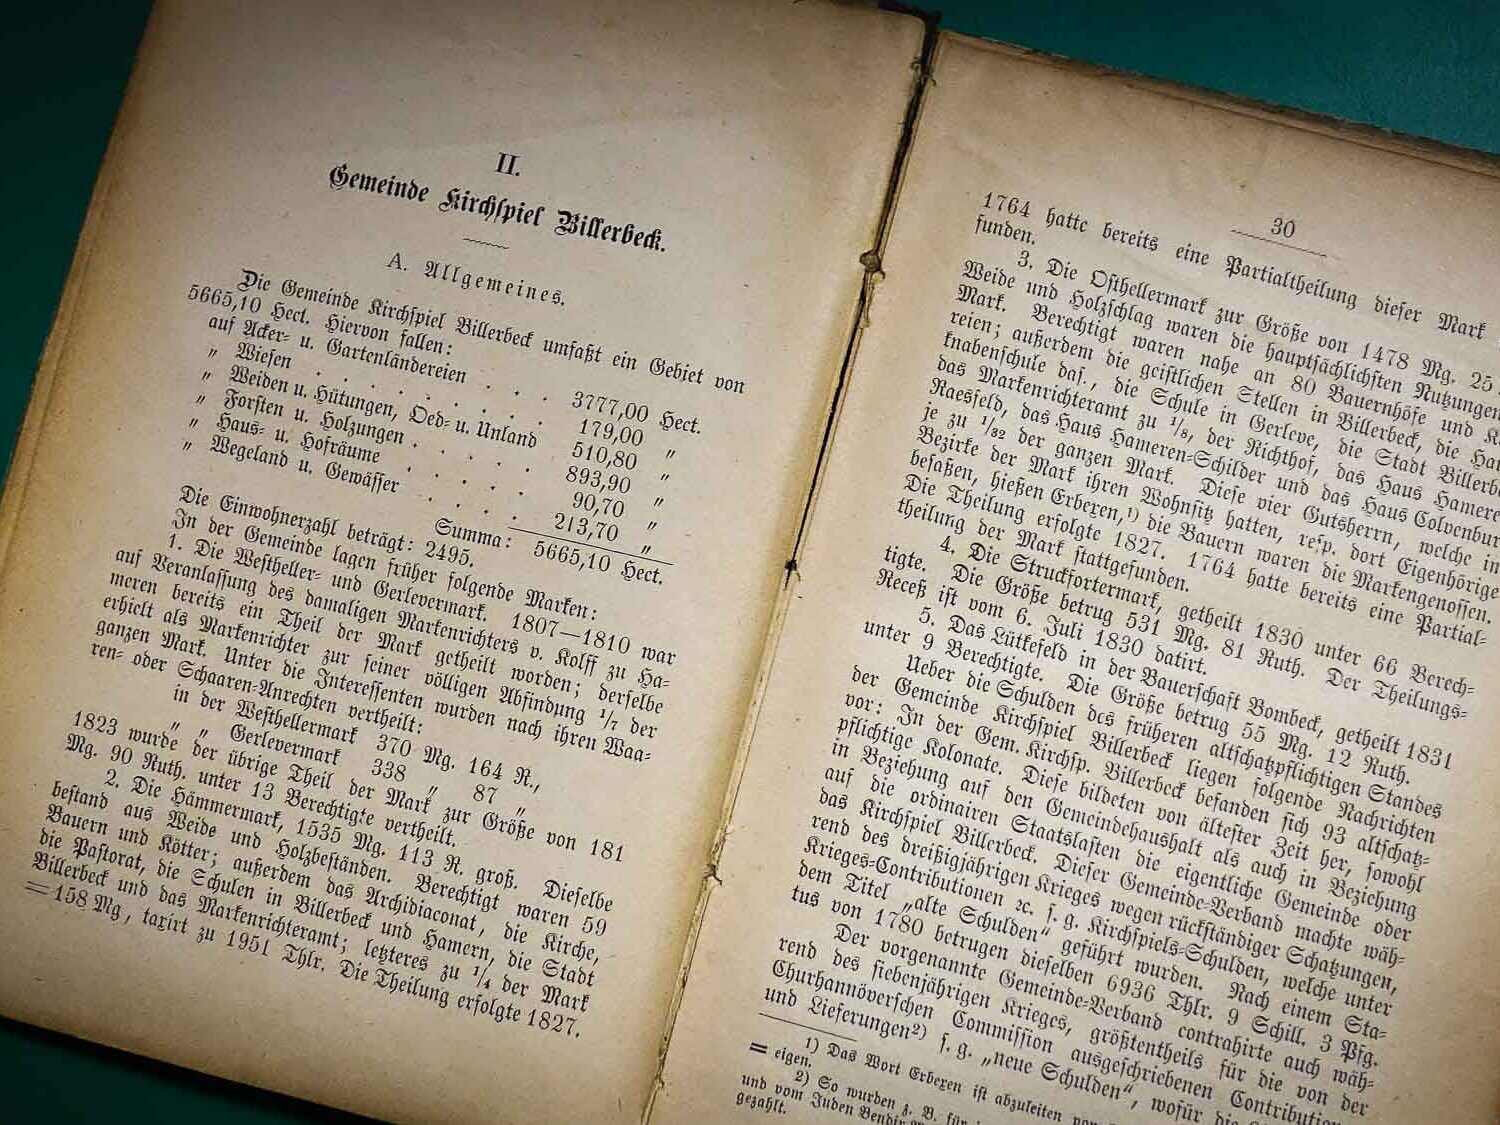 II.
Gemeinde Kirchſpiel Billerbeck.
A. Allgemeines.
Die Gemeinde Kirchſpiel Billerbeck umfaßt ein Gebiet von
5665,10 Hect. Hiervon fallen:
auf Acker- u. Gartenländereien . . . 3777,00 Hect.
„ Wieſen . . . . . . . . 179,00 „
„ Weiden u. Hütungen, Oed- u. Unland 510,80 „
„ Forſten u. Holzungen . . . . . 893,90 „
„ Haus- u. Hofräume . . . . . 90,70 „
„ Wegeland u. Gewäſſer . . . . 213,70 „
Summa: 5665,10 Hect.
Die Einwohnerzahl beträgt: 2495.
In der Gemeinde lagen früher folgende Marken:
1. Die Weſtheller- und Gerlevermark. 1807—1810 war
auf Veranlaſſung des damaligen Markenrichters v. Kolff zu Ha-
meren bereits ein Theil der Mark getheilt worden; derſelbe
erhielt als Markenrichter zur ſeiner völligen Abfindung 1/7 der
ganzen Mark. Unter die Intereſſenten wurden nach ihren Waa-
ren- oder Schaaren-Anrechten vertheilt:
in der Weſthellermark 370 Mg. 164 R.,
„ „ Gerlevermark 338 „ 87 „
1823 wurde der übrige Theil der Mark zur Größe von 181
Mg. 90 Ruth. unter 13 Berechtigte vertheilt.
2. Die Hämmermark, 1535 Mg. 113 R. groß. Dieſelbe
beſtand aus Weide und Holzbeſtänden. Berechtigt waren 59
Bauern und Kötter; außerdem das Archidiaconat, die Kirche,
die Paſtorat, die Schulen in Billerbeck und Hamern, die Stadt
Billerbeck und das Markenrichteramt; letzteres zu 1/4 der Mark
= 158 Mg, taxirt zu 1951 Thlr. Die Theilung erfolgte 1827.
30
1764 hatte bereits eine Partialtheilung dieſer Mark
funden.
3. Die Oſthellermark zur Größe von 1478 Mg. 25
Weide und Holzſchlag waren die hauptſächlichſten Nutzungen
Mark. Berechtigt waren nahe an 80 Bauernhöfe und
reien; außerdem die geiſtlichen Stellen in Billerbeck, die
knabenſchule daſ., die Schule in Gerleve, die Stadt
das Markenrichteramt zu 1/8, der Richthof, das Haus
Raesfeld, das Haus Hameren-Schilder und das Haus
je zu 1/32 der ganzen Mark. Dieſe vier Gutsherrn, welche in
Bezirke der Mark ihren Wohnſitz hatten, reſp. dort Eigenhörige
beſaßen, hießen Erbexen,1) die Bauern waren die Markengenoſſen.
Die Theilung erfolgte 1827. 1764 hatte bereits eine Partial-
theilung der Mark ſtattgefunden.
4. Die Struckfortermark, getheilt 1830 unter 66 Berech-
tigte. Die Größe betrug 531 Mg. 81 Ruth. Der Theilungs-
Receß iſt vom 6. Juli 1830 datirt.
5. Das Lütkefeld in der Bauerſchaft Bombeck, getheilt 1831
unter 9 Berechtigte. Die Größe betrug 55 Mg. 12 Ruth.
Ueber die Schulden des früheren altſchatzpflichtigen Standes
der Gemeinde Kirchſpiel Billerbeck liegen folgende Nachrichten
vor: In der Gem. Kirchſp. Billerbeck befanden ſich 93 altſchatz-
pflichtige Kolonate. Dieſe bildeten von älteſter Zeit her, ſowohl
in Beziehung auf den Gemeindehaushalt als auch in Beziehung
auf die ordinairen Staatslaſten die eigentliche Gemeinde oder
das Kirchſpiel Billerbeck. Dieſer Gemeinde-Verband machte wäh-
rend des dreißigjährigen Krieges wegen rückſtändiger Schatzungen,
Krieges-Contributionen ꝛc. ſ. g. Kirchſpiels-Schulden, welche unter
dem Titel „alte Schulden“ geführt wurden. Nach einem Sta-
tus von 1780 betrugen dieſelben 6936 Thlr. 9 Schill. 3 Pfg.
Der vorgenannte Gemeinde-Verband contrahirte auch wäh-
rend des ſiebenjährigen Krieges, größtentheils für die von der
Churhannöverſchen Commiſſion ausgeſchriebenen
und Lieferungen2) ſ. g. „neue Schulden“, wofür
1) Das Wort Erbexen iſt abzuleiten
= eigen.
2) So wurden z. B. für
und vom Juden
gezahlt.